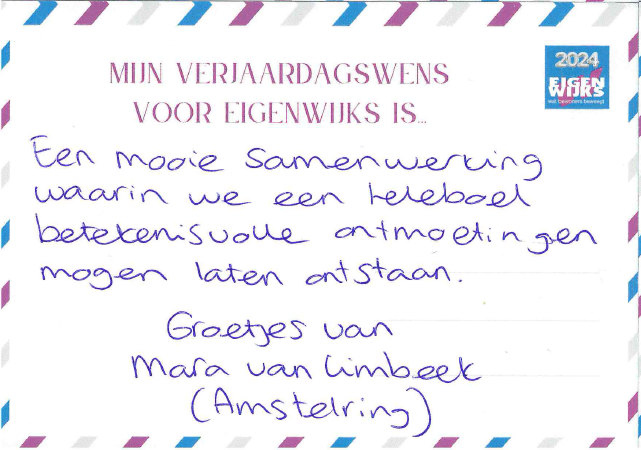 MIJN VERJAARDAGSWENS
VOOR EIGENWIJKS IS...
2024
EIGEN
WIJKS
wat bewoners beweegt
Een mooie samenwerking
waarin we een heleboel
betekenisvolle ontmoetingen
mogen laten ontstaan.
Groetjes van
Mara van Limbeek
(Amstelring)